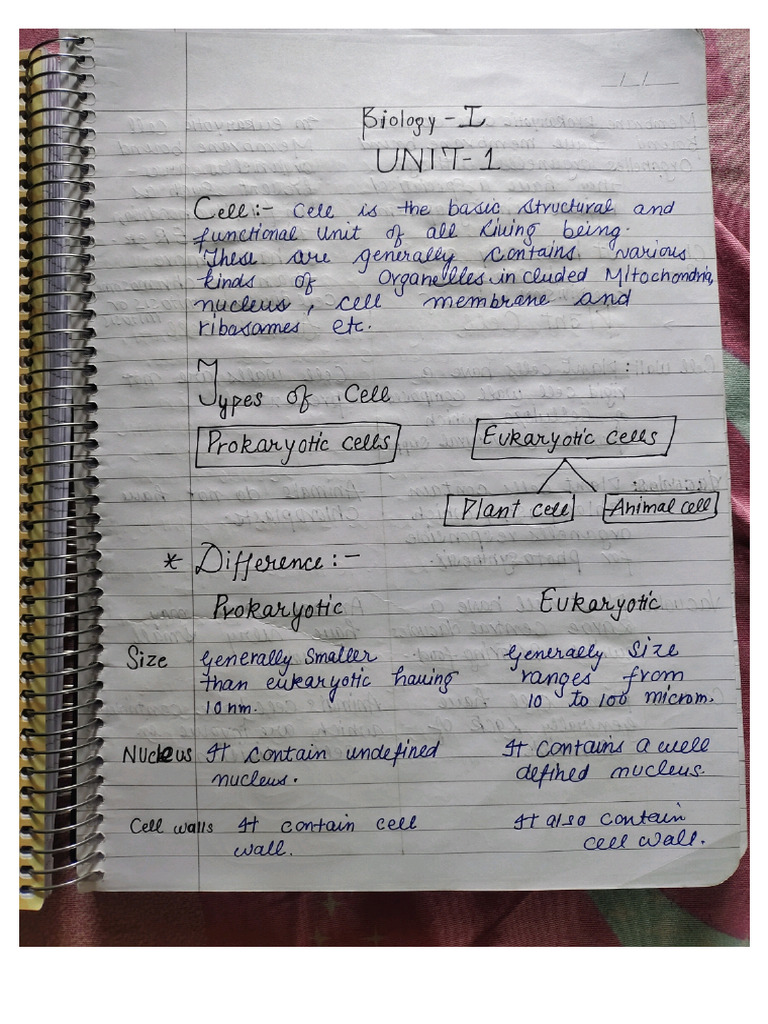 Biology - I
UNIT-1
Cell:- Cell is the basic structural and
functional Unit of all living being.
These are generally contains various
kinds of Organelles included Mitochondria,
nucleus, cell membrane and
ribasames etc.
Types of Cell
Prokaryotic cells Eukaryotic cells
Plant cell Animal cell
* Difference:-
Prokaryotic Eukaryotic
Size Generally Smaller Generally Size
than eukaryotic having ranges from
10 nm. 10 to 100 microm.
Nucleus It contain undefined It contains a well
nucleus. defined nucleus.
Cell walls It contain cell It also contain
wall. cell wall.